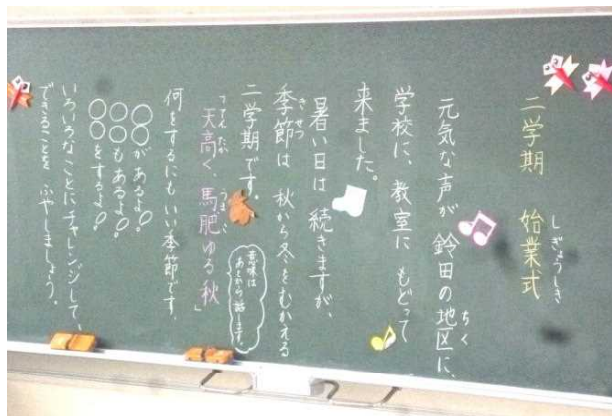 二学期 始業式
しぎょうしき
元気な声が 鈴田の地区に、
ちく
学校に、教室に もどって
来ました。
暑い日は 続きますが、
季節は 秋から冬をむかえる
きせつ
二学期です。
意味は
あとから話します。
「天高く、馬肥ゆる秋」
何をするにも いい季節です。
○○があるよ!
○○もあるよ!
○○をするよ!
いろいろなことにチャレンジして、
できることを ふやしましょう。